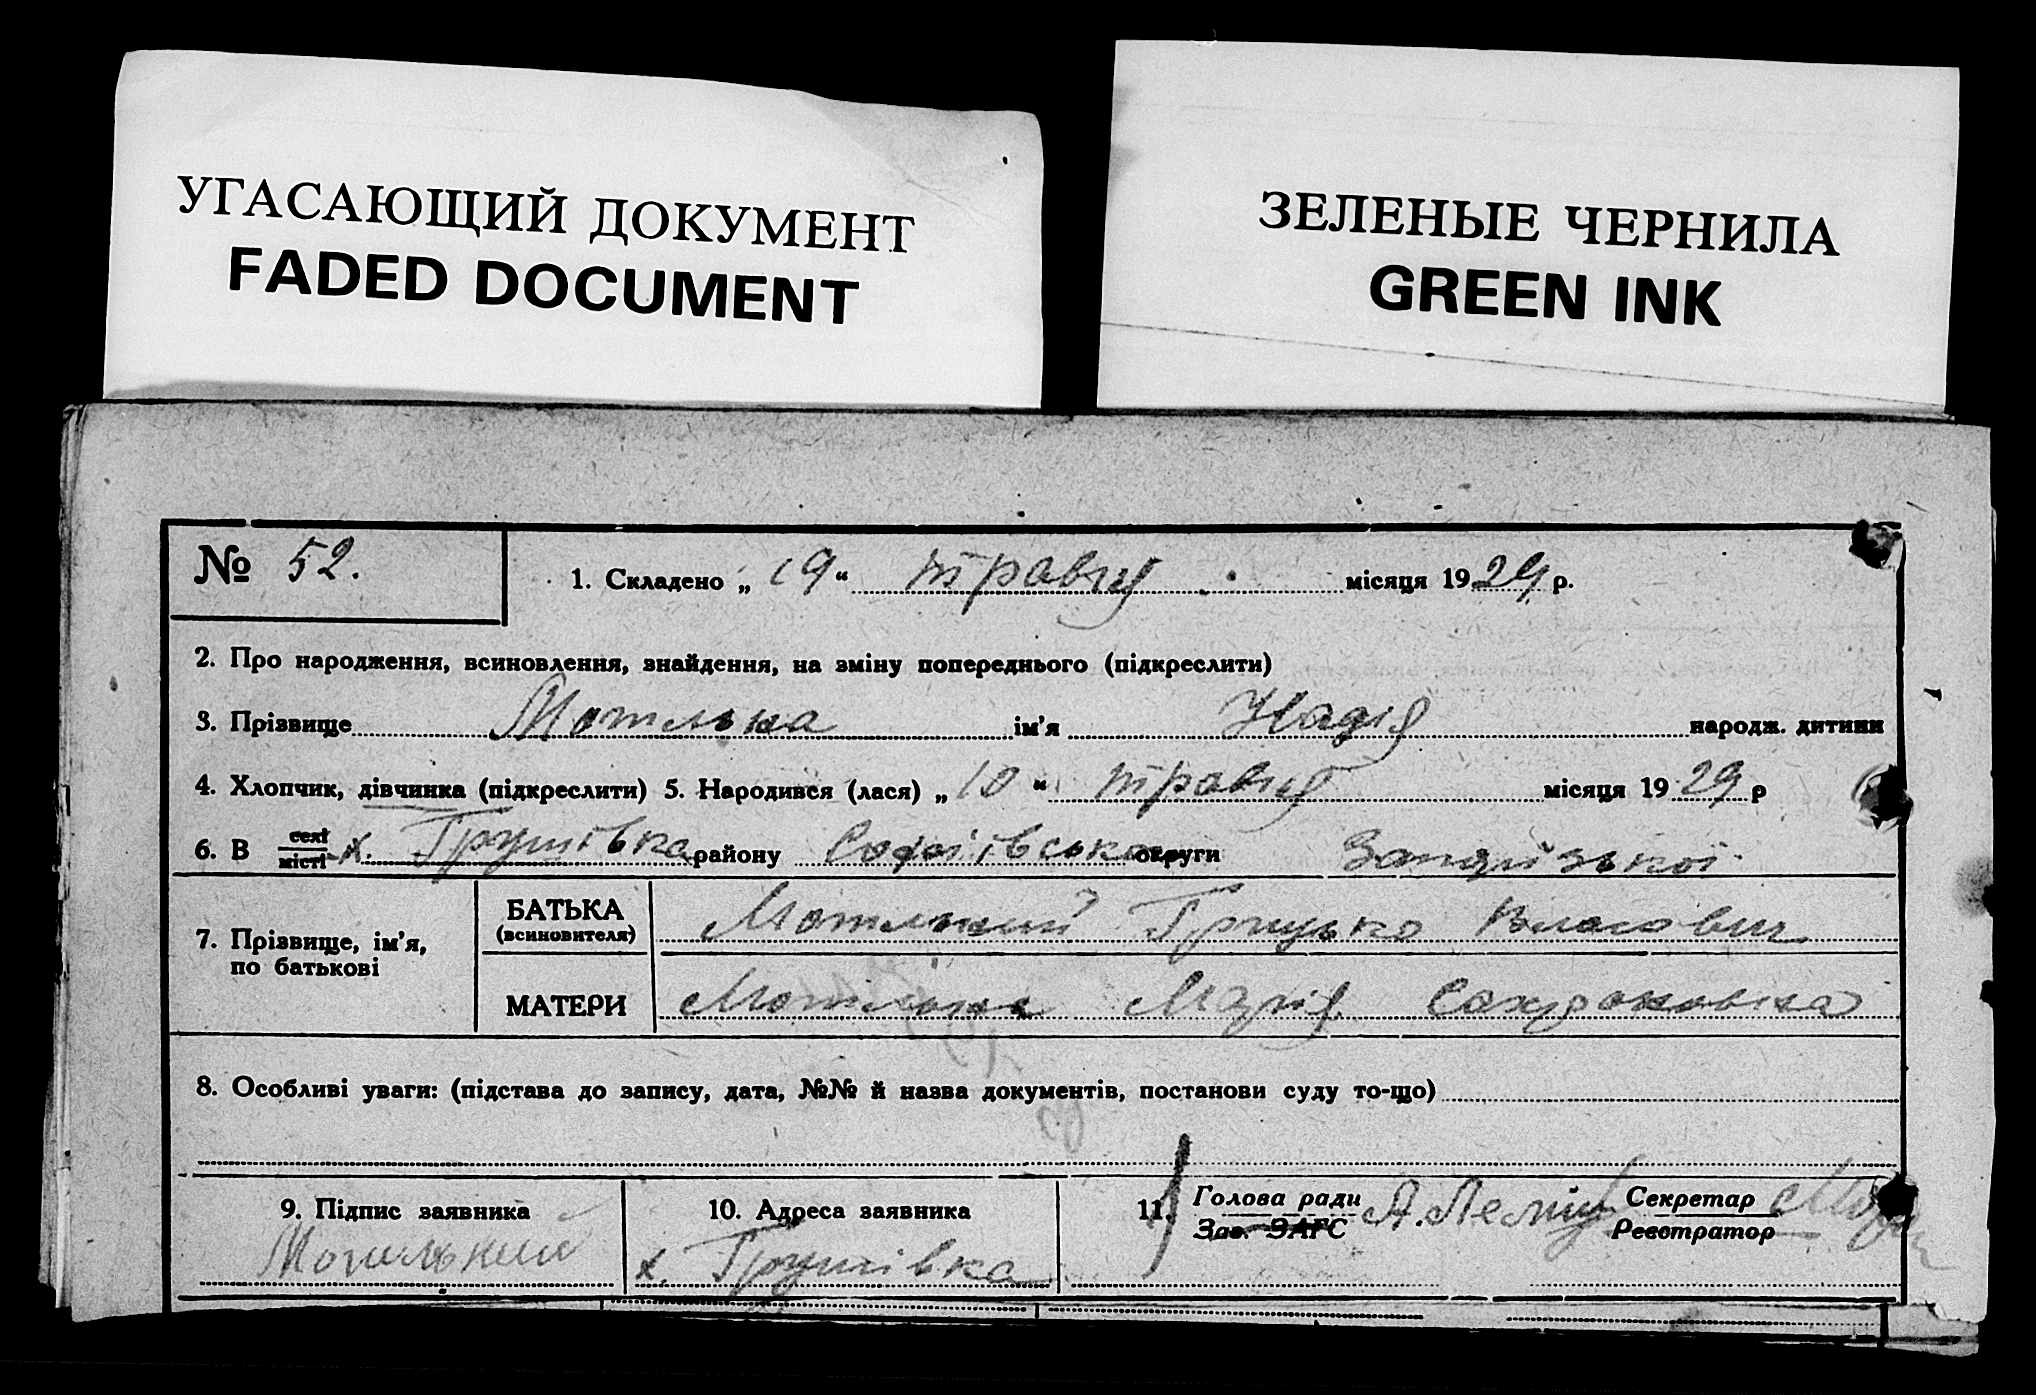 УГАСАЮЩИЙ ДОКУМЕНТ
FADED DOCUMENT
ЗЕЛЕНЫЕ ЧЕРНИЛА
GREEN INK
№ 52.
1. Складено „ 19 “ травня місяця 1929 р.
2. Про народження, всиновлення, знайдення, на зміну попереднього (підкреслити)
3. Прізвище ім'я Надія народж. дитини
4. Хлопчик, дівчинка (підкреслити) 5. Народився (лася) „ 10 “ травня місяця 1929 р
6. В селі місті х. Грушівка району Софіївського округи
7. Прізвище, ім'я, по батькові
БАТЬКА (всиновителя) Грицько Власович
МАТЕРИ Марія
8. Особливі уваги: (підстава до запису, дата, №№ й назва документів, постанови суду то-що)
9. Підпис заявника
10. Адреса заявника
х. Грушівка
11. Голова ради Секретар
Зав. ЗАГС Реєстратор